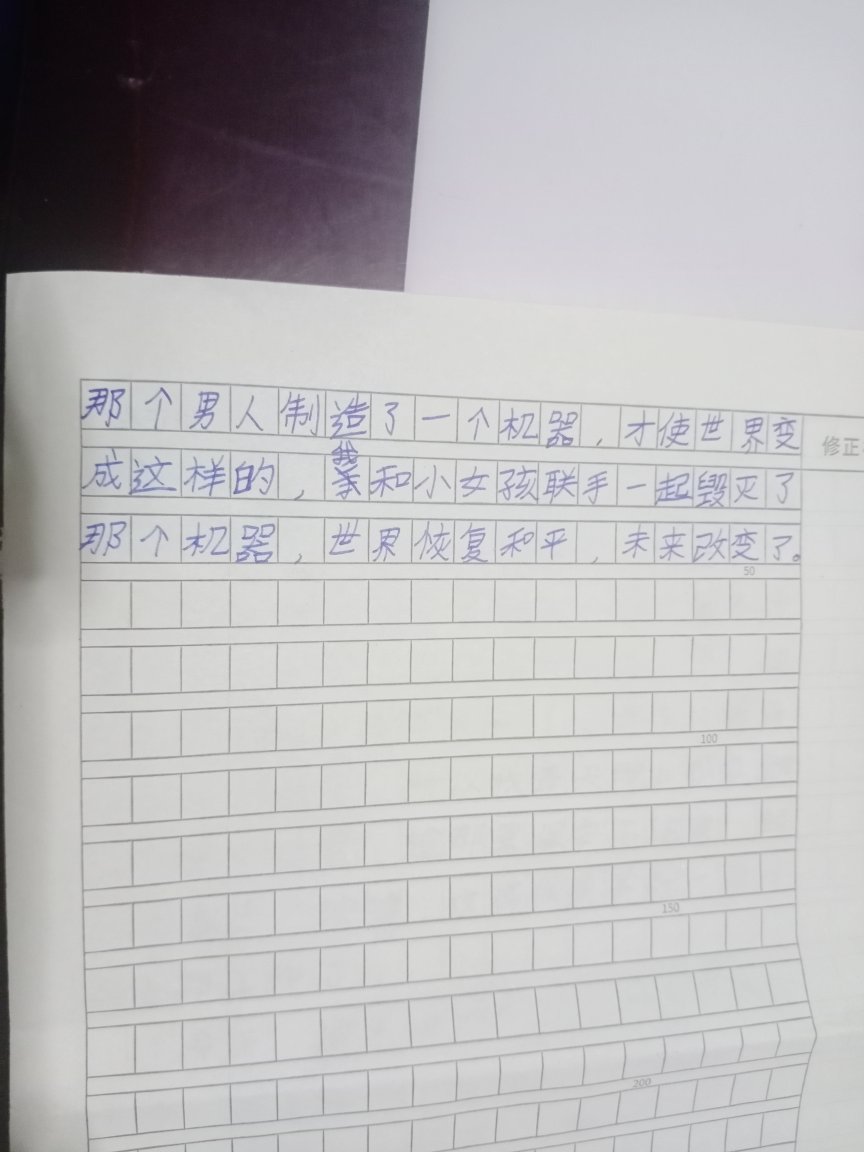 那个男人制造了一个机器，才使世界变
修正
我
成这样的，和小女孩联手一起毁灭了
那个机器，世界恢复和平，未来改变了。
50
100
150
200